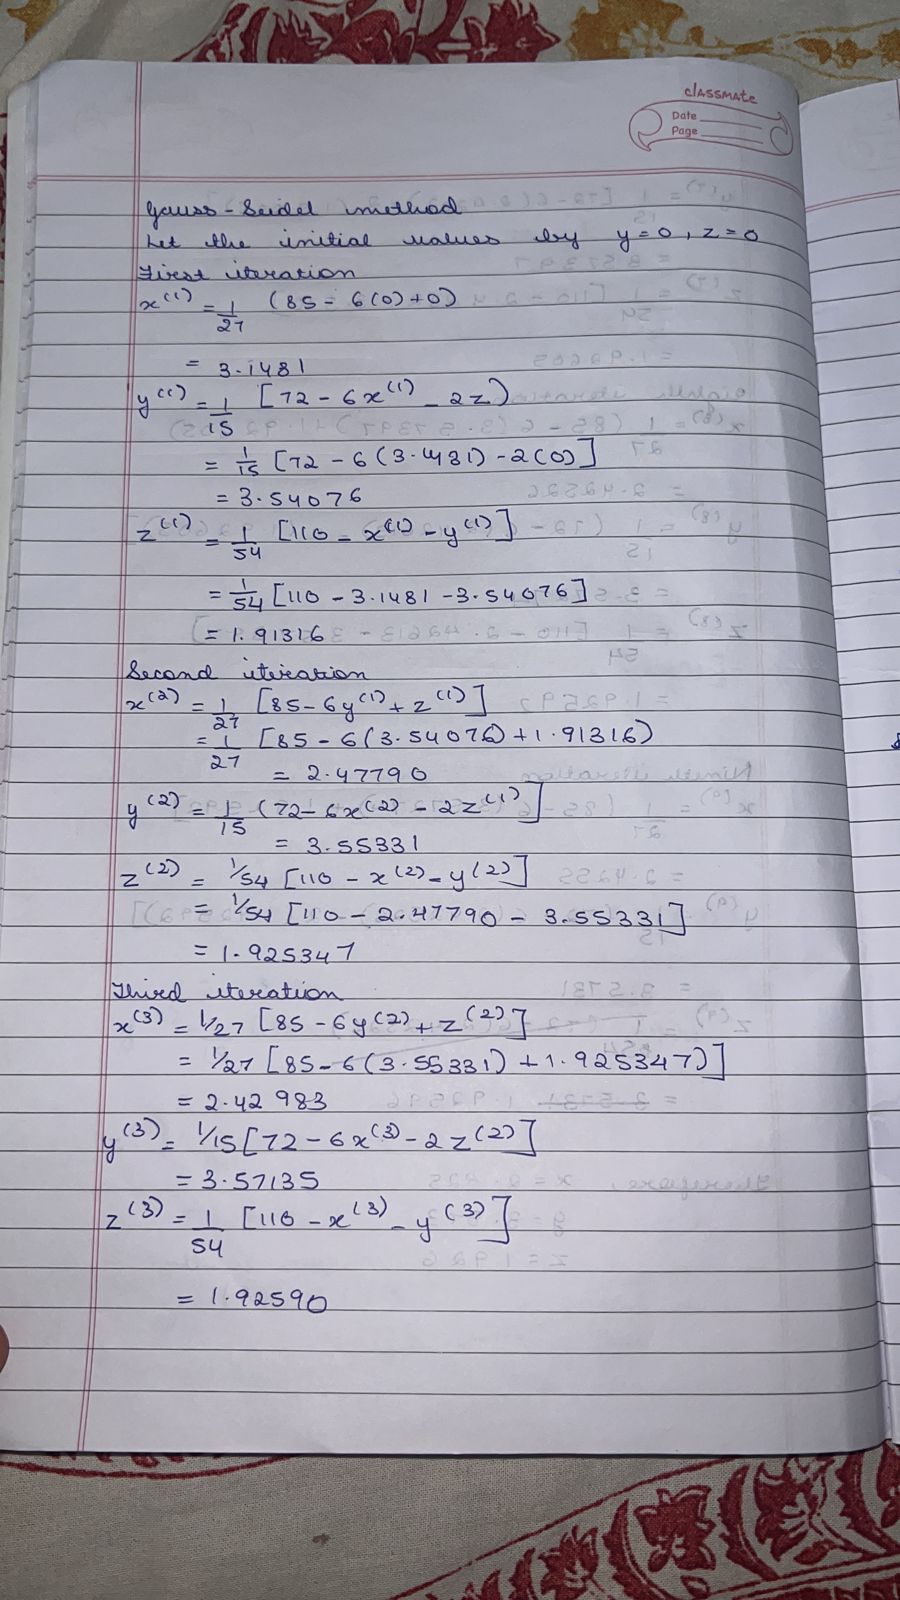 classmate
Date
Page
Gauss-Seidel method
Let the initial values by y=0, z=0
First iteration
x⁽¹⁾ = 1/27 (85 - 6(0)+0)
= 3.1481
y⁽¹⁾ = 1/15 [72 - 6x⁽¹⁾ - 2z)
= 1/15 [72 - 6(3.1481) - 2(0)]
= 3.54076
z⁽¹⁾ = 1/54 [110 - x⁽¹⁾ - y⁽¹⁾]
= 1/54 [110 - 3.1481 - 3.54076]
= 1.91316
Second iteration
x⁽²⁾ = 1/27 [85 - 6y⁽¹⁾ + z⁽¹⁾]
= 1/27 [85 - 6(3.54076) + 1.91316)
= 2.47790
y⁽²⁾ = 1/15 (72 - 6x⁽²⁾ - 2z⁽¹⁾]
= 3.55331
z⁽²⁾ = 1/54 [110 - x⁽²⁾ - y⁽²⁾]
= 1/54 [110 - 2.47790 - 3.55331]
= 1.925347
Third iteration
x⁽³⁾ = 1/27 [85 - 6y⁽²⁾ + z⁽²⁾]
= 1/27 [85 - 6(3.55331) + 1.925347)]
= 2.42983
y⁽³⁾ = 1/15 [72 - 6x⁽³⁾ - 2z⁽²⁾]
= 3.57135
z⁽³⁾ = 1/54 [110 - x⁽³⁾ - y⁽³⁾]
= 1.92590